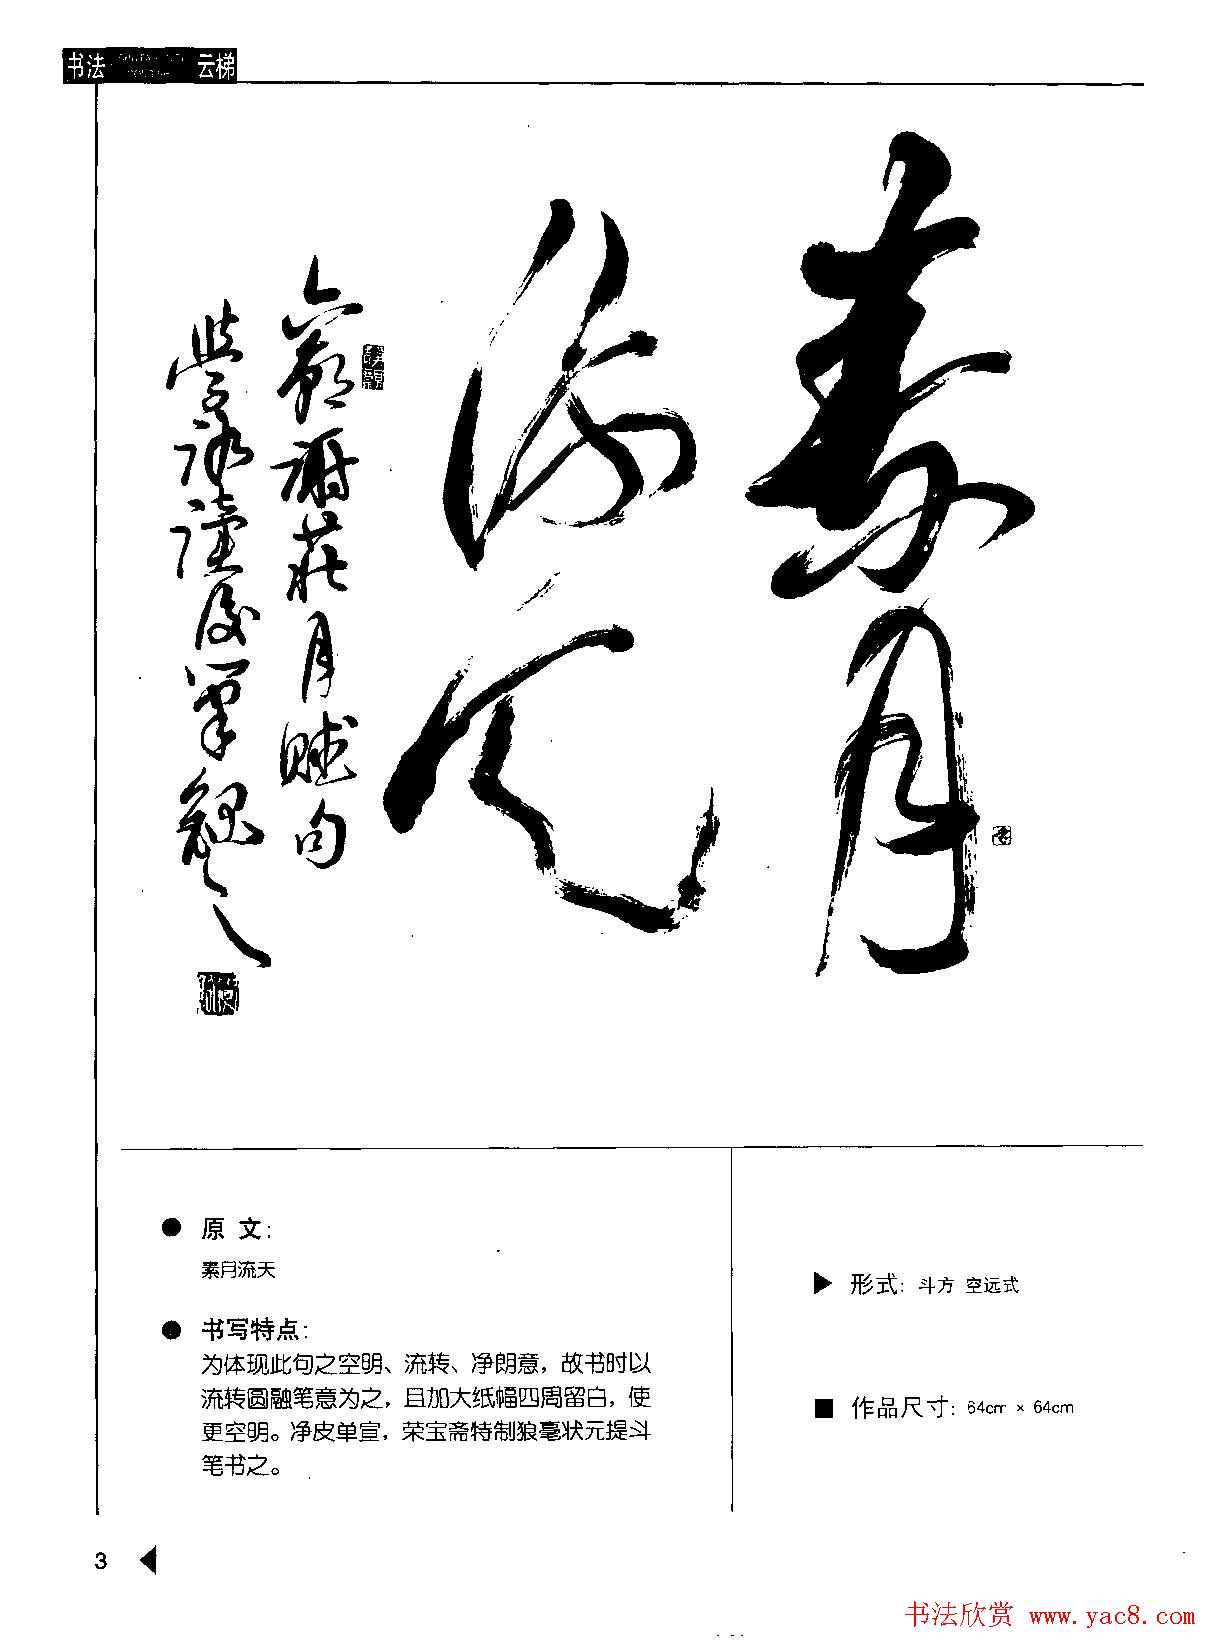 书法 云梯
素月
流天
节谢庄月赋句
原 文：
素月流天
书写特点：
为体现此句之空明、流转、净朗意，故书时以
流转圆融笔意为之，且加大纸幅四周留白，使
更空明。净皮单宣，荣宝斋特制狼毫状元提斗
笔书之。
形式：斗方 空远式
作品尺寸：64cm × 64cm
3
书法欣赏 www.yac8.com